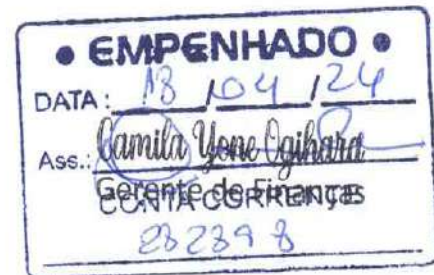 • EMPENHADO •
DATA: 18 / 04 / 24
Camila Yone Ogihara
Ass.:
Gerente de Finanças
CONTA CORRENTE